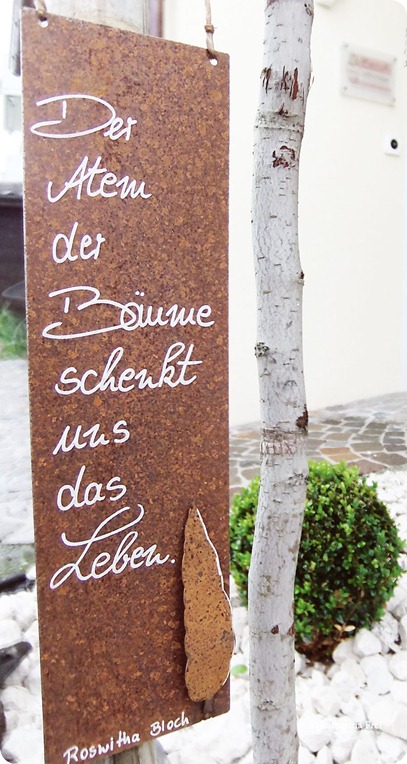 Der
Atem
der
Bäume
schenkt
uns
das
Leben.
Roswitha Bloch